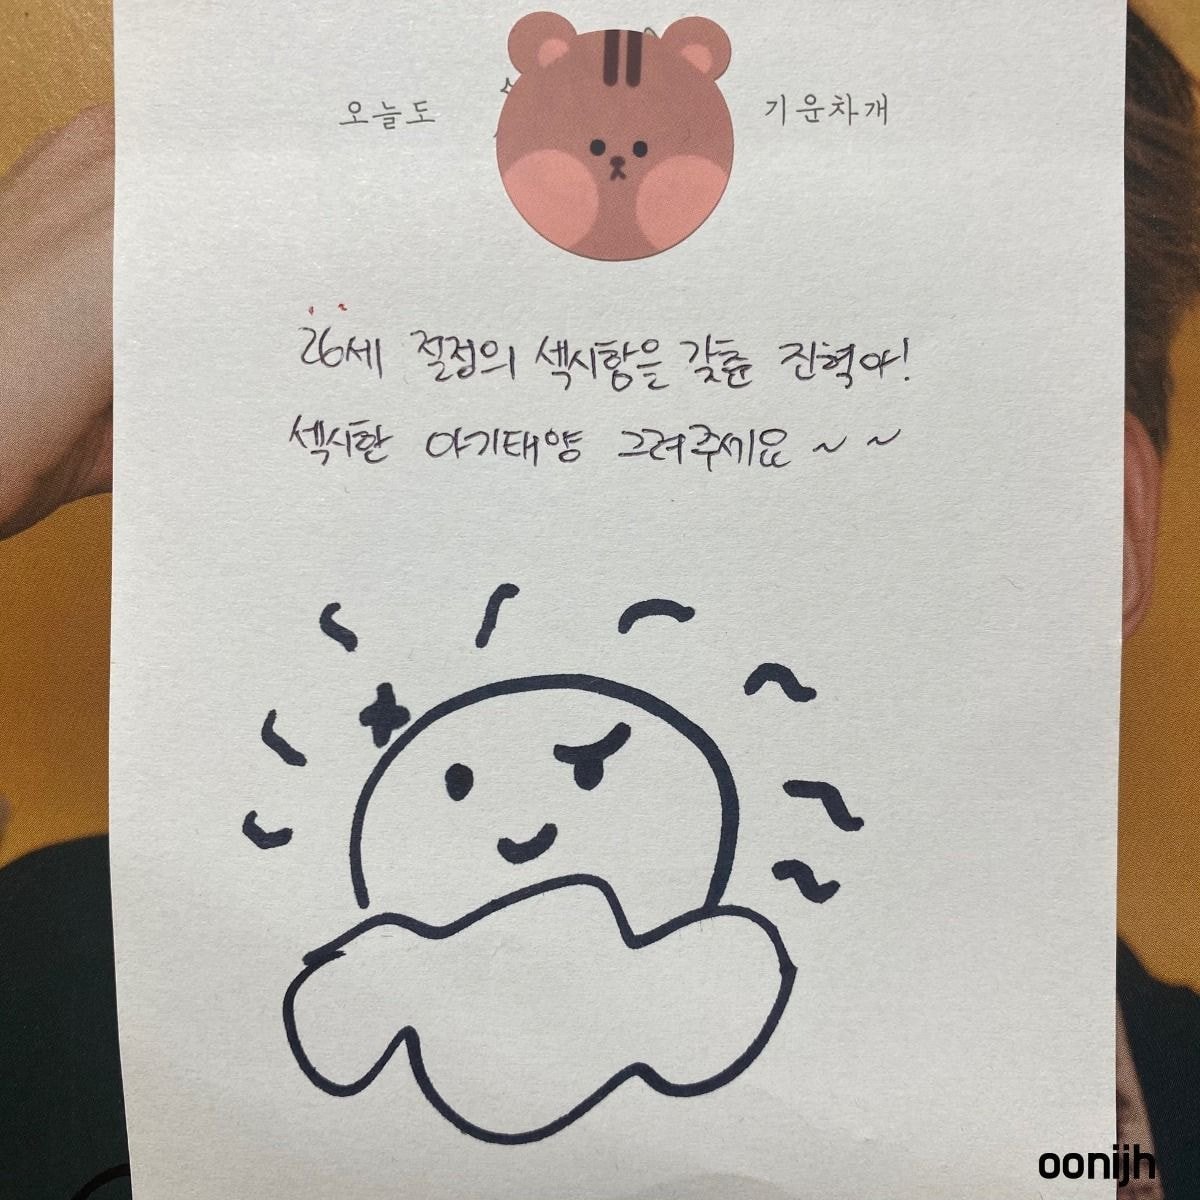 오늘도 기운차개
26세 절정의 섹시함을 갖춘 진혁아!
섹시한 아기태양 그려주세요 ~ ~
oonijh